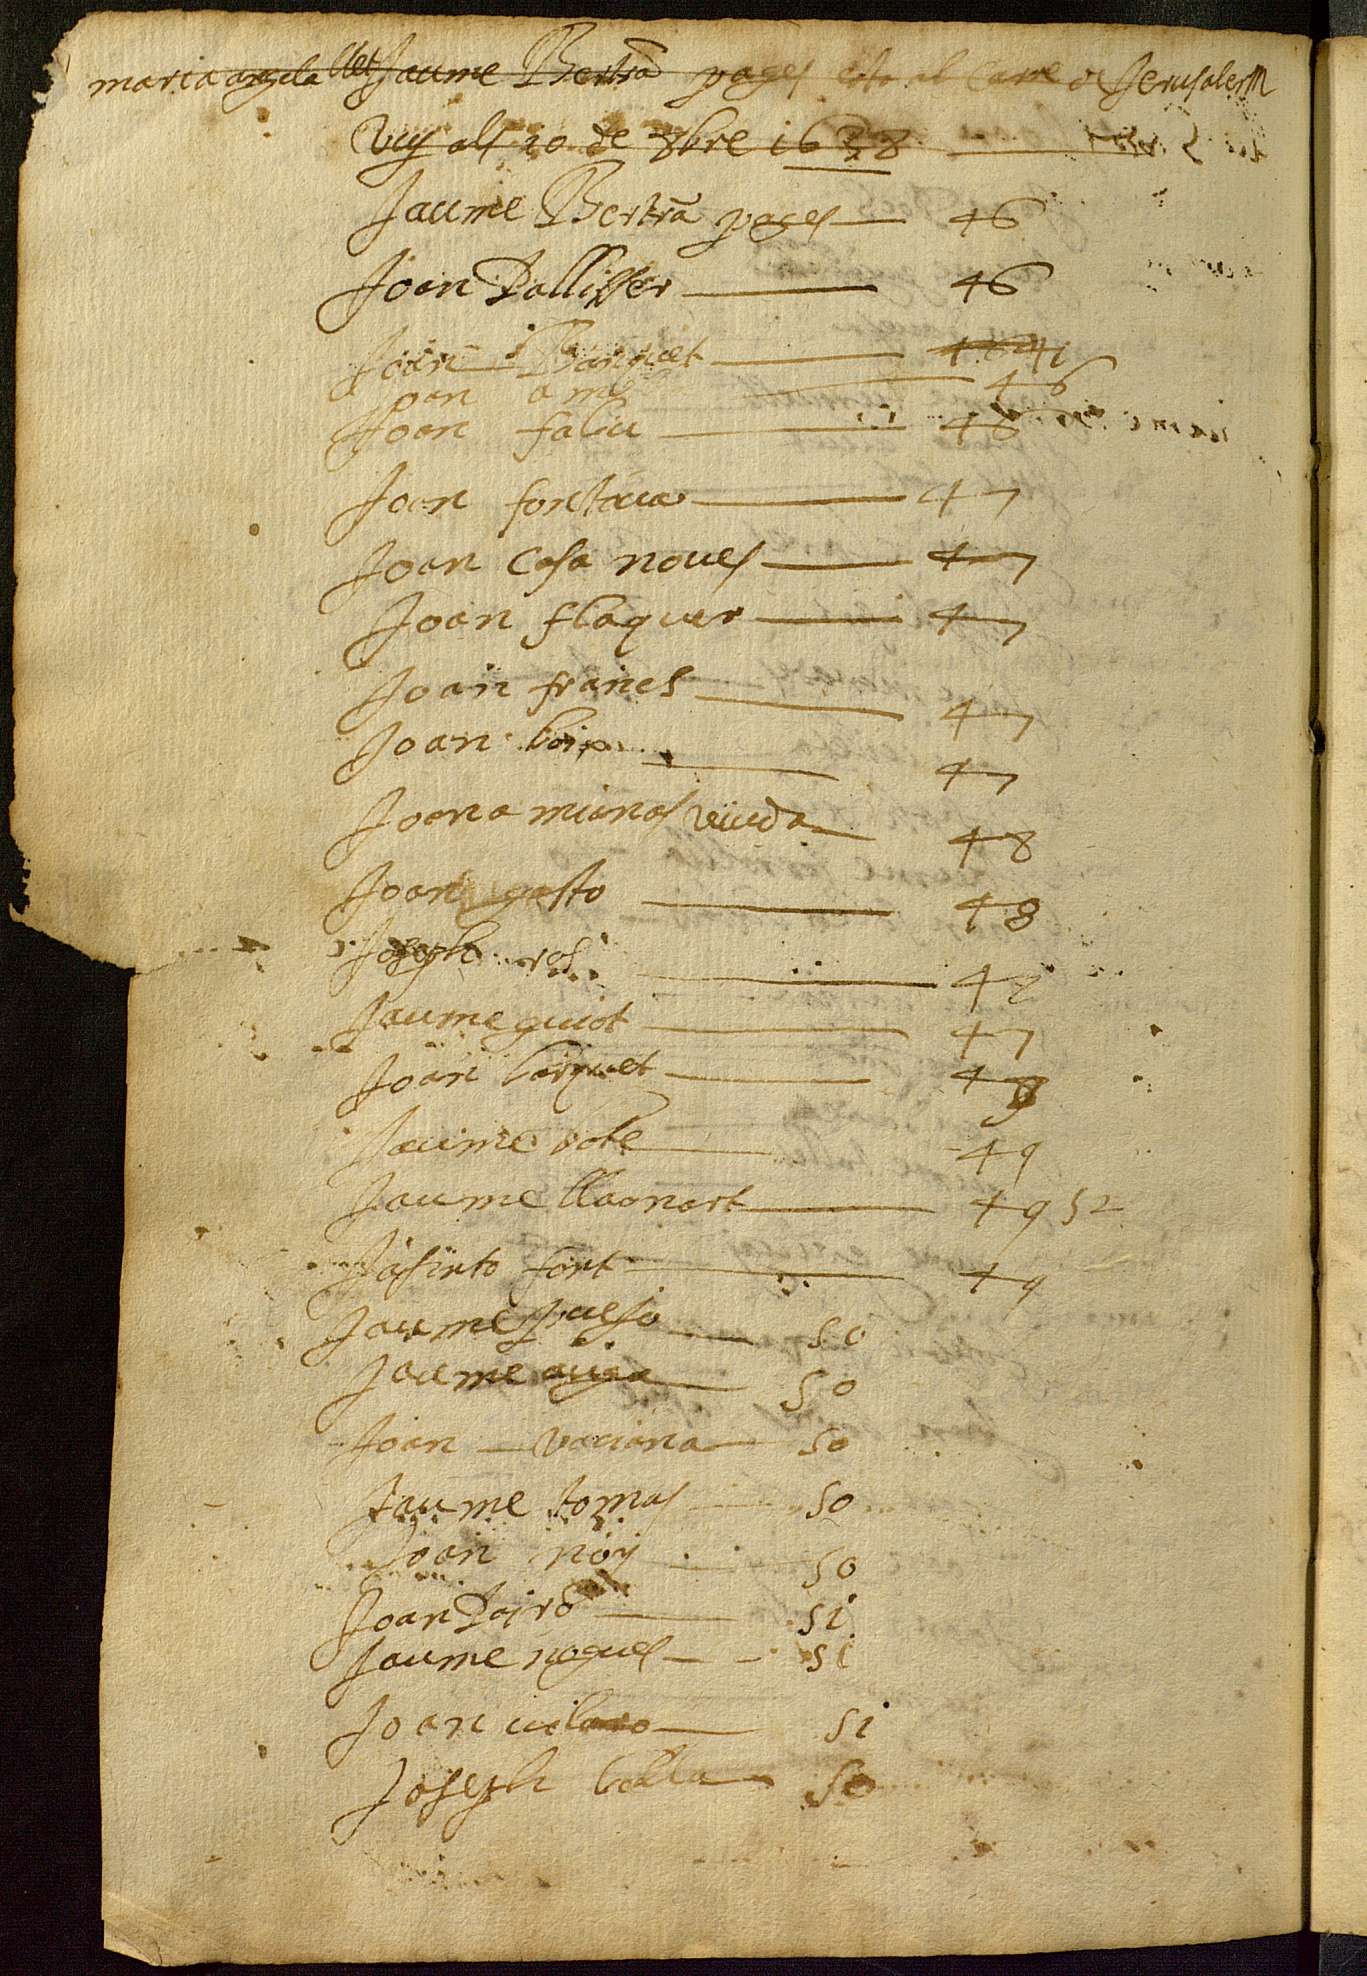 maria angela llet Jaume Bertrā pages esta al Carre de Jerusalem
Vuy als 20 de 8bre 1638
Jaume Bertrā pages 46
Joan Pallisser 46
Joan Banquet
Joan 46
Joan faliu 46
Joan fontana 47
Joan Casa noues 47
Joan flaquer 47
Joan frances 47
Joan 47
Joana mianas viuda 48
Joan gasto 48
Joseph ros
Jaume guiot 47
Joan banquet
Jaume bote 49
Jaume llaonart 49 52
Jasinto fort 49
Jaume 50
Jaume 50
Joan 50
Jaume tomas 50
Joan noy 50
Joan Pairo 51
Jaume nogues 51
Joan vilaro 51
Joseph 50